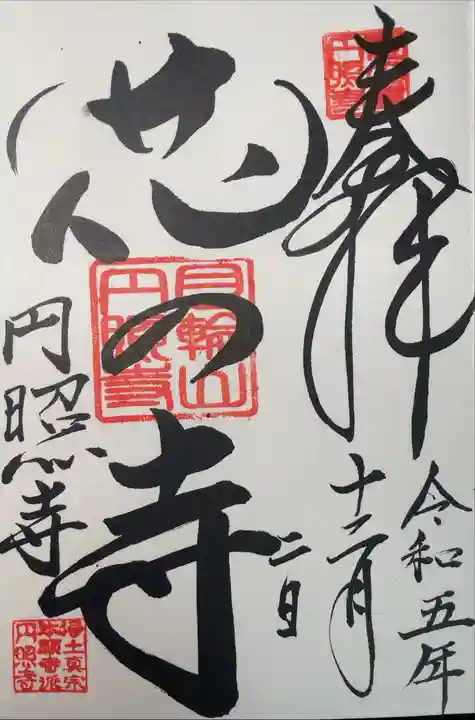 奉拝
令和五年
十二月
二日
花の寺
円照寺
円照寺
円照寺
浄土真宗
本願寺派
円照寺